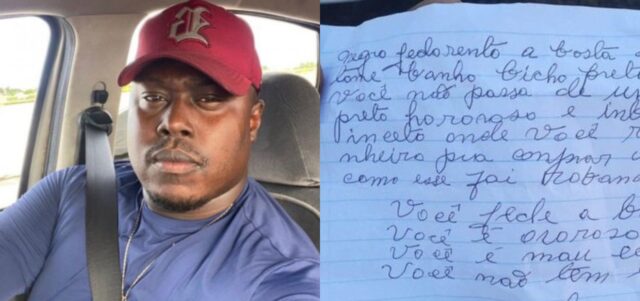 negro fedorento a bosta
tome banho bicho preto
Você não passa de
preto e
inceto onde você
nheiro pra compar
como esse fai
Você fede a
Você é ororoso
Você é mau
Você não tem